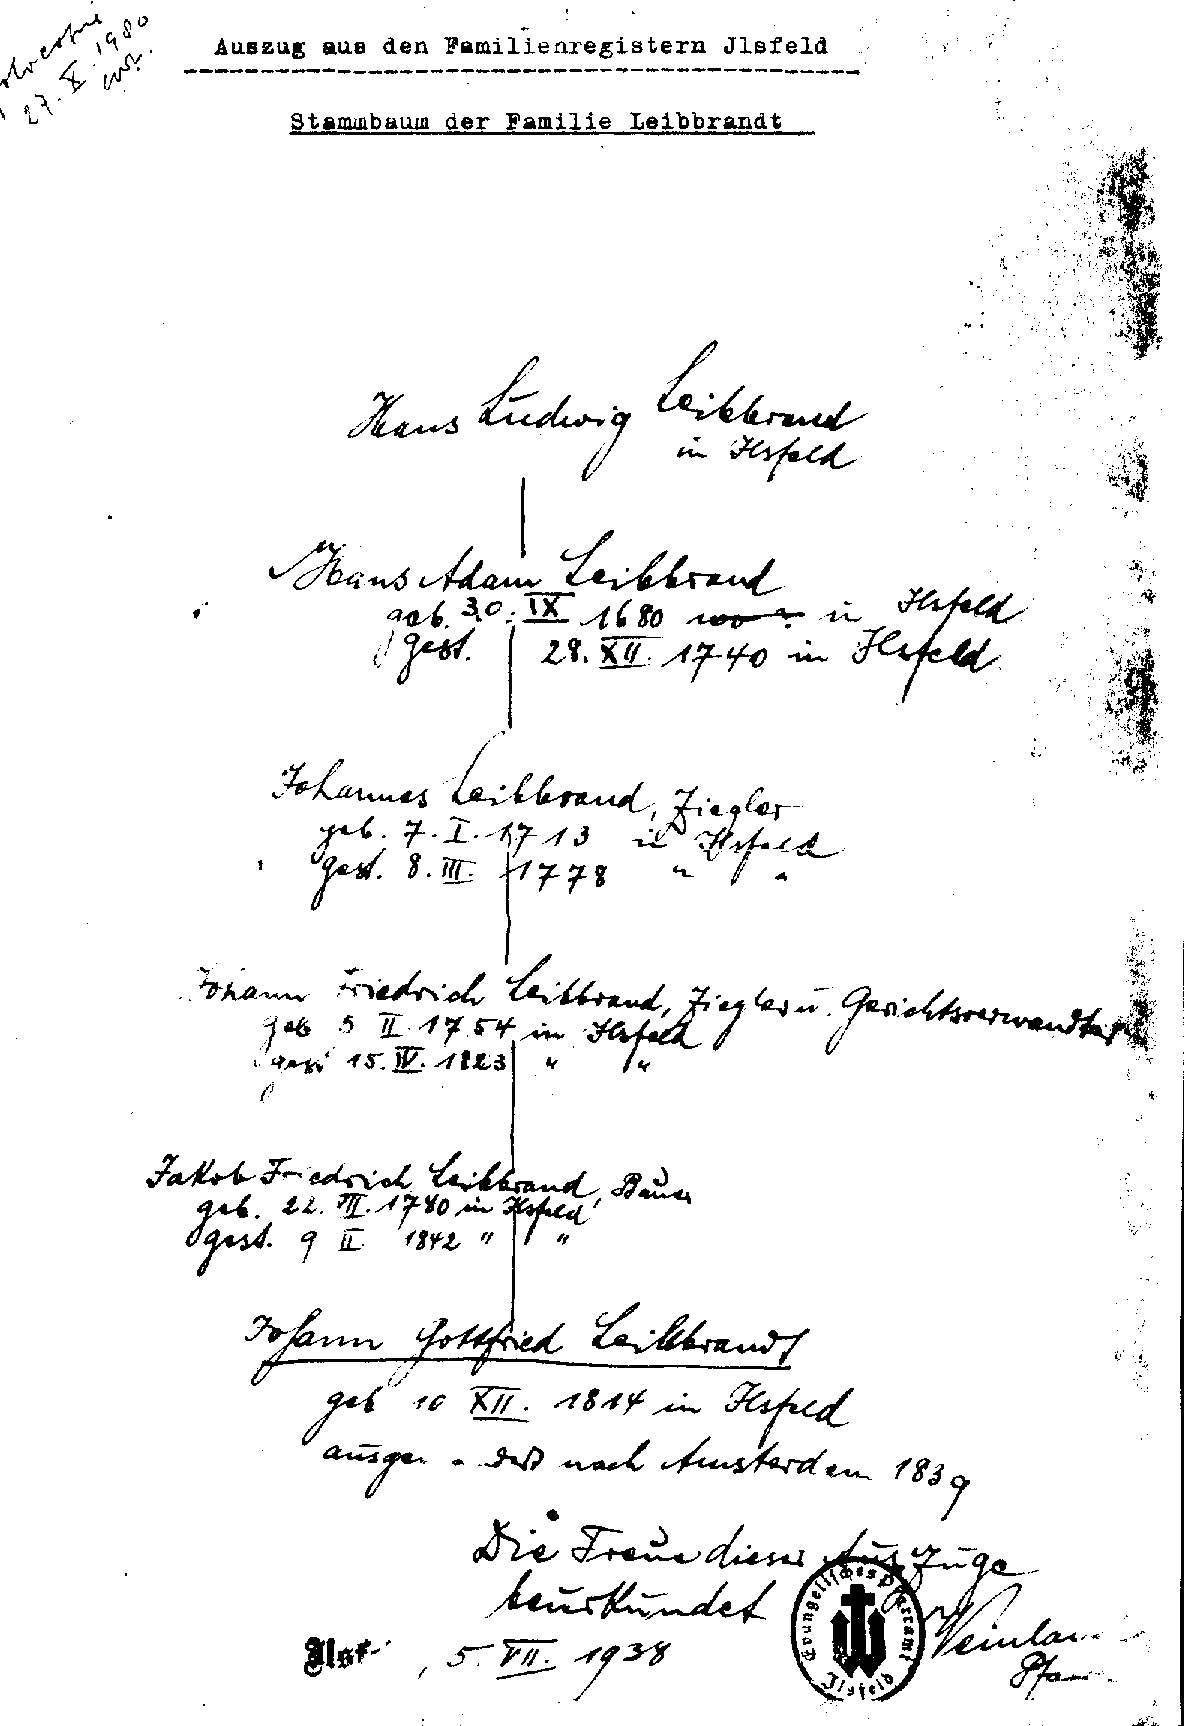 27. X. 1980
Auszug aus den Familienregistern Jlsfeld
Stammbaum der Familie Leibbrandt
Hans Ludwig Leibbrand
in Ilsfeld
Hans Adam Leibbrand
geb. 30. IX 1680 wo? in Ilsfeld
gest. 28. XII. 1740 in Ilsfeld
Johannes Leibbrand, Ziegler
geb. 7. I. 1713 in Ilsfeld
gest. 8. III. 1778 " "
Johann Friedrich Leibbrand, Ziegler u. Gerichtsverwandter
geb 5 II. 1754 in Ilsfeld
gest 15. IV. 1823 " "
Jakob Friedrich Leibbrand, Bauer
geb. 22. III. 1780 in Ilsfeld
gest. 9 II 1842 " "
Johann Gottfried Leibbrandt
geb 10 XII. 1814 in Ilsfeld
nach Amsterdam 1839
Die Treue dieser Auszüge
beurkundet
, 5. VII. 1938
Evangelisches Pfarramt
Jlsfeld